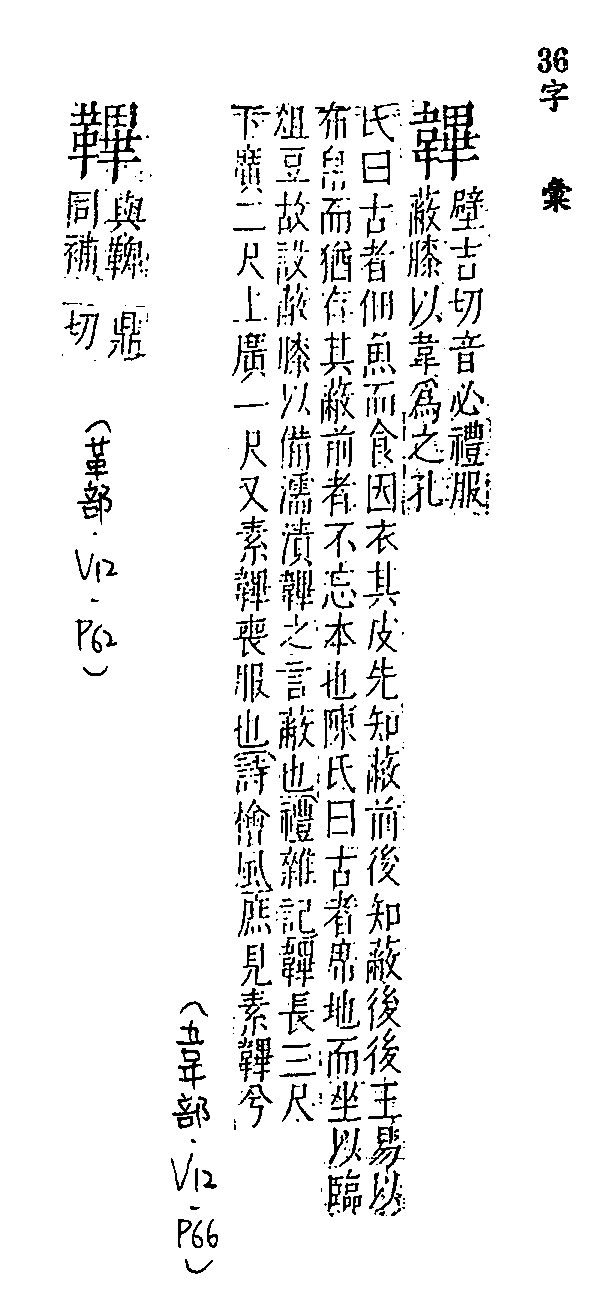 36字 彙
韠
壁吉切音必禮服
蔽膝以韋爲之孔
氏曰古者佃魚而食因衣其皮先知蔽前後知蔽後後王易以
布帛而猶存其蔽前者不忘本也陳氏曰古者席地而坐以臨
俎豆故設蔽膝以備濡漬韠之言蔽也禮雜記韠長三尺
下廣二尺上廣一尺又素韠喪服也詩檜風庶見素韠兮
(韋部·V12-P66)
鞸
與鞞鼎
同補切
(革部·V12-P62)